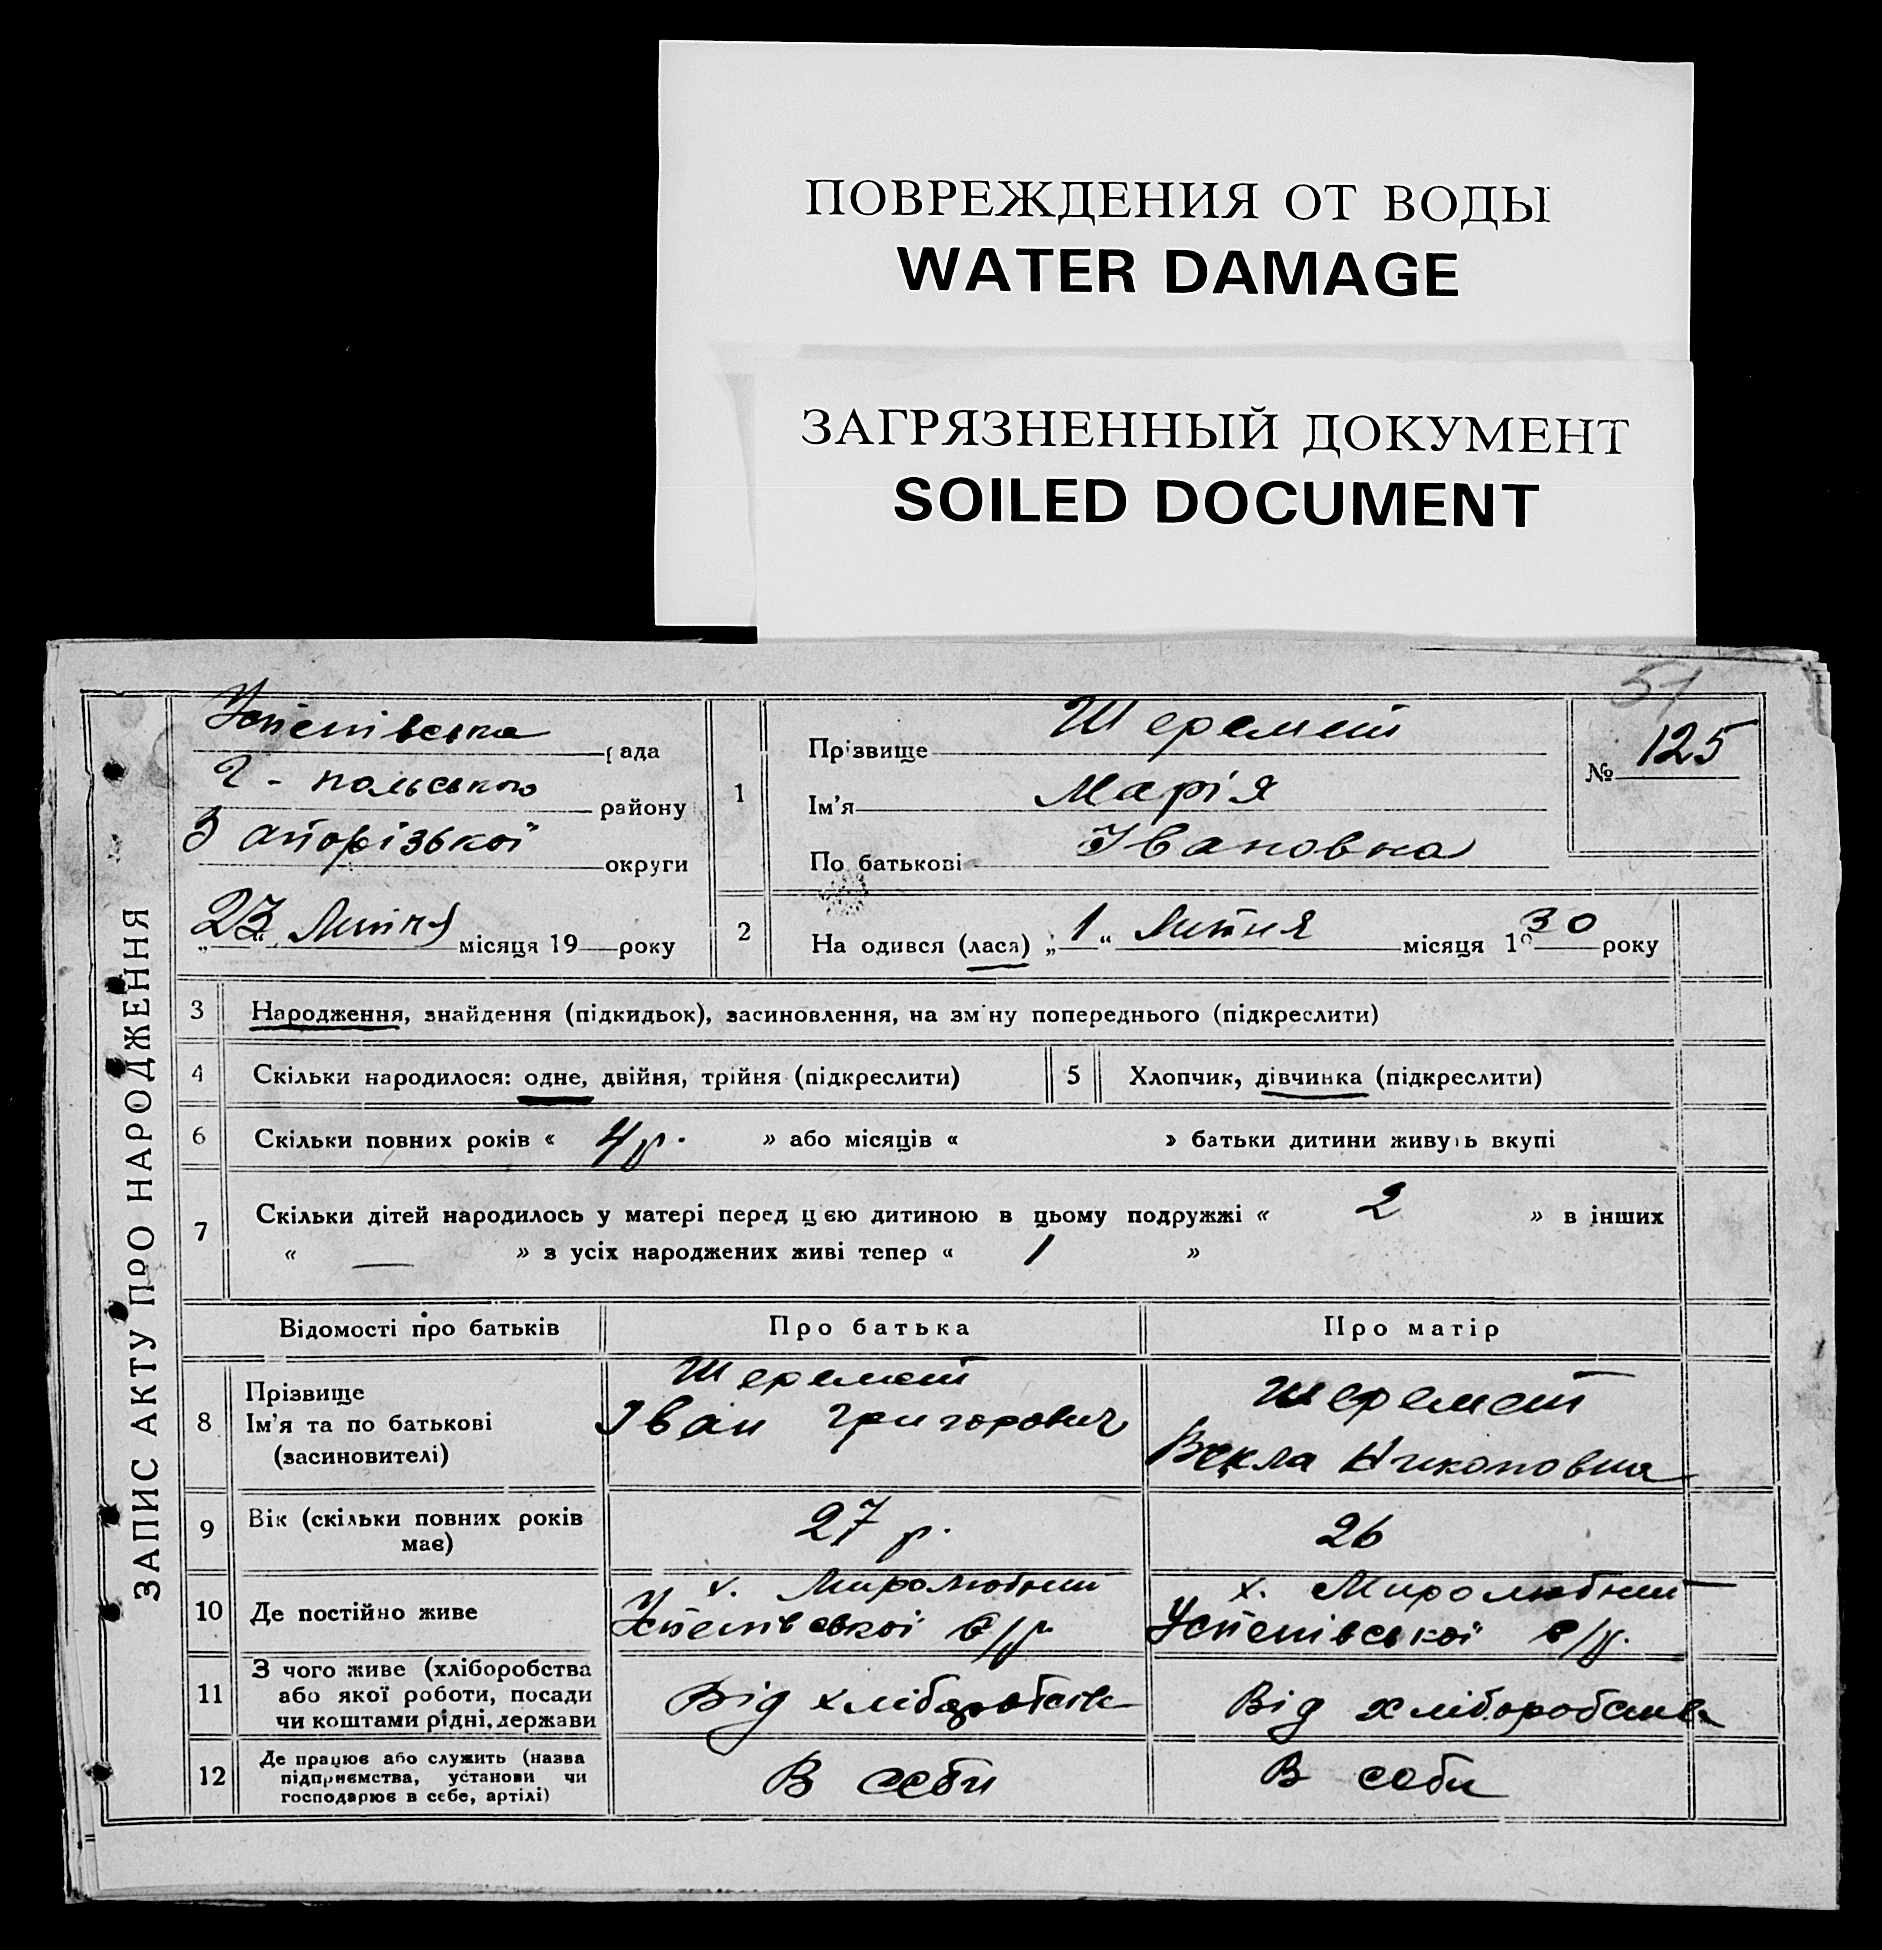 ПОВРЕЖДЕНИЯ ОТ ВОДЫ
WATER DAMAGE
ЗАГРЯЗНЕННЫЙ ДОКУМЕНТ
SOILED DOCUMENT
51
ЗАПИС АКТУ ПРО НАРОДЖЕННЯ
Успенівська рада
Г-польського району
Запорізької округи
„23“ Липня місяця 19 року
1
Прізвище Шеремет
Ім'я Марія
По батькові Івановна
№ 125
2 На одився (лася) „1“ Липня місяця 1930 року
3 Народження, знайдення (підкидьок), засиновлення, на зм ну попереднього (підкреслити)
4 Скільки народилося: одне, двійня, трійня (підкреслити)
5 Хлопчик, дівчинка (підкреслити)
6 Скільки повних років « 4 р. » або місяців « » батьки дитини живуть вкупі
7 Скільки дітей народилось у матері перед цєю дитиною в цьому подружжі « 2 » в інших
« — » з усіх народжених живі тепер « 1 »
Відомості про батьків Про батька Про матір
8 Прізвище Ім'я та по батькові (засиновителі)
Шеремет
Іван Григорович
Шеремет
Векла Никоновна
9 Вік (скільки повних років має) 27 р. 26
10 Де постійно живе
х. Миролюбний
Успенівської с/р.
х. Миролюбний
Успенівської с/р.
11 З чого живе (хліборобства
або якої роботи, посади
чи коштами рідні, держави
Від хліборобства
Від хліборобства
12 Де працює або служить (назва
підприємства, установи чи
господарює в себе, артілі)
В себи
В себи